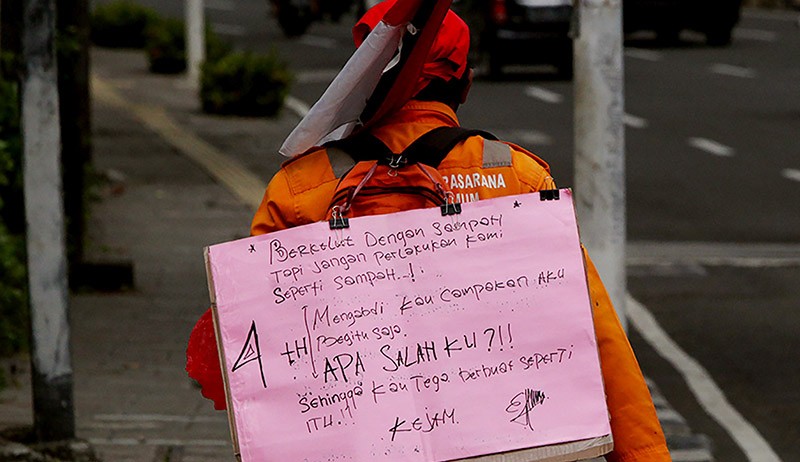 RASARANA
UMUM
* Berkelut Dengan Sampah *
Tapi Jangan Perlakukan Kami
Seperti Sampah..!!
4 TH Mengabdi Kau Campakan Aku
Begitu Saja
APA SALAH KU?!!
Sehingga Kau Tega Berbuat Seperti
ITU.!!
KEJAM.